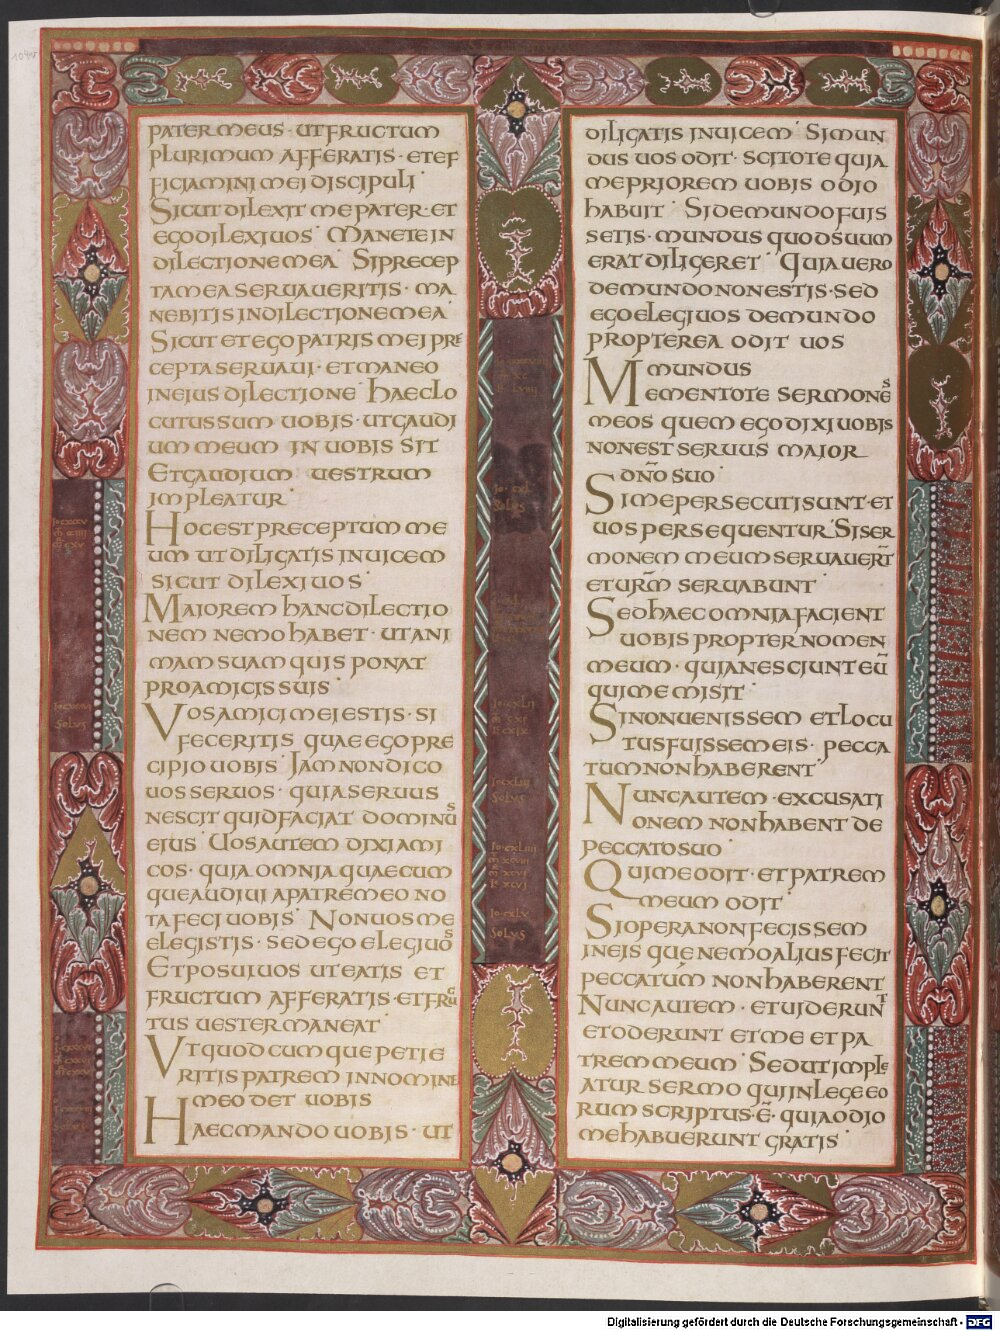 PATER MEUS · UT FRUCTUM
PLURIMUM AFFERATIS · ET EF
FICIAMINI MEI DISCIPULI ·
SICUT DILEXIT ME PATER · ET
EGO DILEXI UOS · MANETE IN
DILECTIONE MEA · SI PRECEP
TA MEA SERUAUERITIS · MA
NEBITIS IN DILECTIONE MEA ·
SICUT ET EGO PATRIS MEI PRE
CEPTA SERUAUI · ET MANEO
IN EIUS DILECTIONE · HAEC LO
CUTUS SUM UOBIS · UT GAUDI
UM MEUM IN UOBIS SIT
ET GAUDIUM UESTRUM
IMPLEATUR ·
HOC EST PRECEPTUM ME
UM UT DILIGATIS INUICEM
SICUT DILEXI UOS ·
MAIOREM HANC DILECTIO
NEM NEMO HABET · UT ANI
MAM SUAM QUIS PONAT
PRO AMICIS SUIS ·
VOS AMICI MEI ESTIS · SI
FECERITIS QUAE EGO PRE
CIPIO UOBIS · IAM NON DICO
UOS SERUOS · QUIA SERUUS
NESCIT QUID FACIAT DOMINUS
EIUS · UOS AUTEM DIXI AMI
COS · QUIA OMNIA QUAECUM
QUE AUDIUI A PATRE MEO NO
TA FECI UOBIS · NON UOS ME
ELEGISTIS · SED EGO ELEGI UOS
ET POSUI UOS UT EATIS ET
FRUCTUM AFFERATIS · ET FRUC
TUS UESTER MANEAT ·
VT QUODCUMQUE PETIE
RITIS PATREM IN NOMINE
MEO DET UOBIS
HAEC MANDO UOBIS · UT
DILIGATIS INUICEM · SI MUN
DUS UOS ODIT · SCITOTE QUIA
ME PRIOREM UOBIS ODIO
HABUIT · SI DE MUNDO FUIS
SETIS · MUNDUS QUOD SUUM
ERAT DILIGERET · QUIA UERO
DE MUNDO NON ESTIS · SED
EGO ELEGI UOS DE MUNDO
PROPTEREA ODIT UOS
MUNDUS
MEMENTOTE SERMONES
MEOS QUEM EGO DIXI UOBIS
NON EST SERUUS MAIOR
DÑO SUO ·
SI ME PERSECUTI SUNT · ET
UOS PERSEQUENTUR · SI SER
MONEM MEUM SERUAUER̄T
ET UR̄M SERUABUNT ·
SED HAEC OMNIA FACIENT
UOBIS PROPTER NOMEN
MEUM · QUIA NESCIUNT EŪ
QUI ME MISIT ·
SI NON UENISSEM ET LOCU
TUS FUISSEM EIS · PECCA
TUM NON HABERENT ·
NUNC AUTEM · EXCUSATI
ONEM NON HABENT DE
PECCATO SUO ·
QUI ME ODIT · ET PATREM
MEUM ODIT ·
SI OPERA NON FECISSEM
IN EIS QUE NEMO ALIUS FECIT
PECCATUM NON HABERENT
NUNC AUTEM · ET UIDERUNT
ET ODERUNT ET ME ET PA
TREM MEUM · SED UT IMPLE
ATUR SERMO QUI IN LEGE EO
RUM SCRIPTUS · Ē · QUIA ODIO
ME HABUERUNT GRATIS ·
IO · CXLIII
SOLUS
IO · CXLV
SOLUS
Digitalisierung gefördert durch die Deutsche Forschungsgemeinschaft - DFG